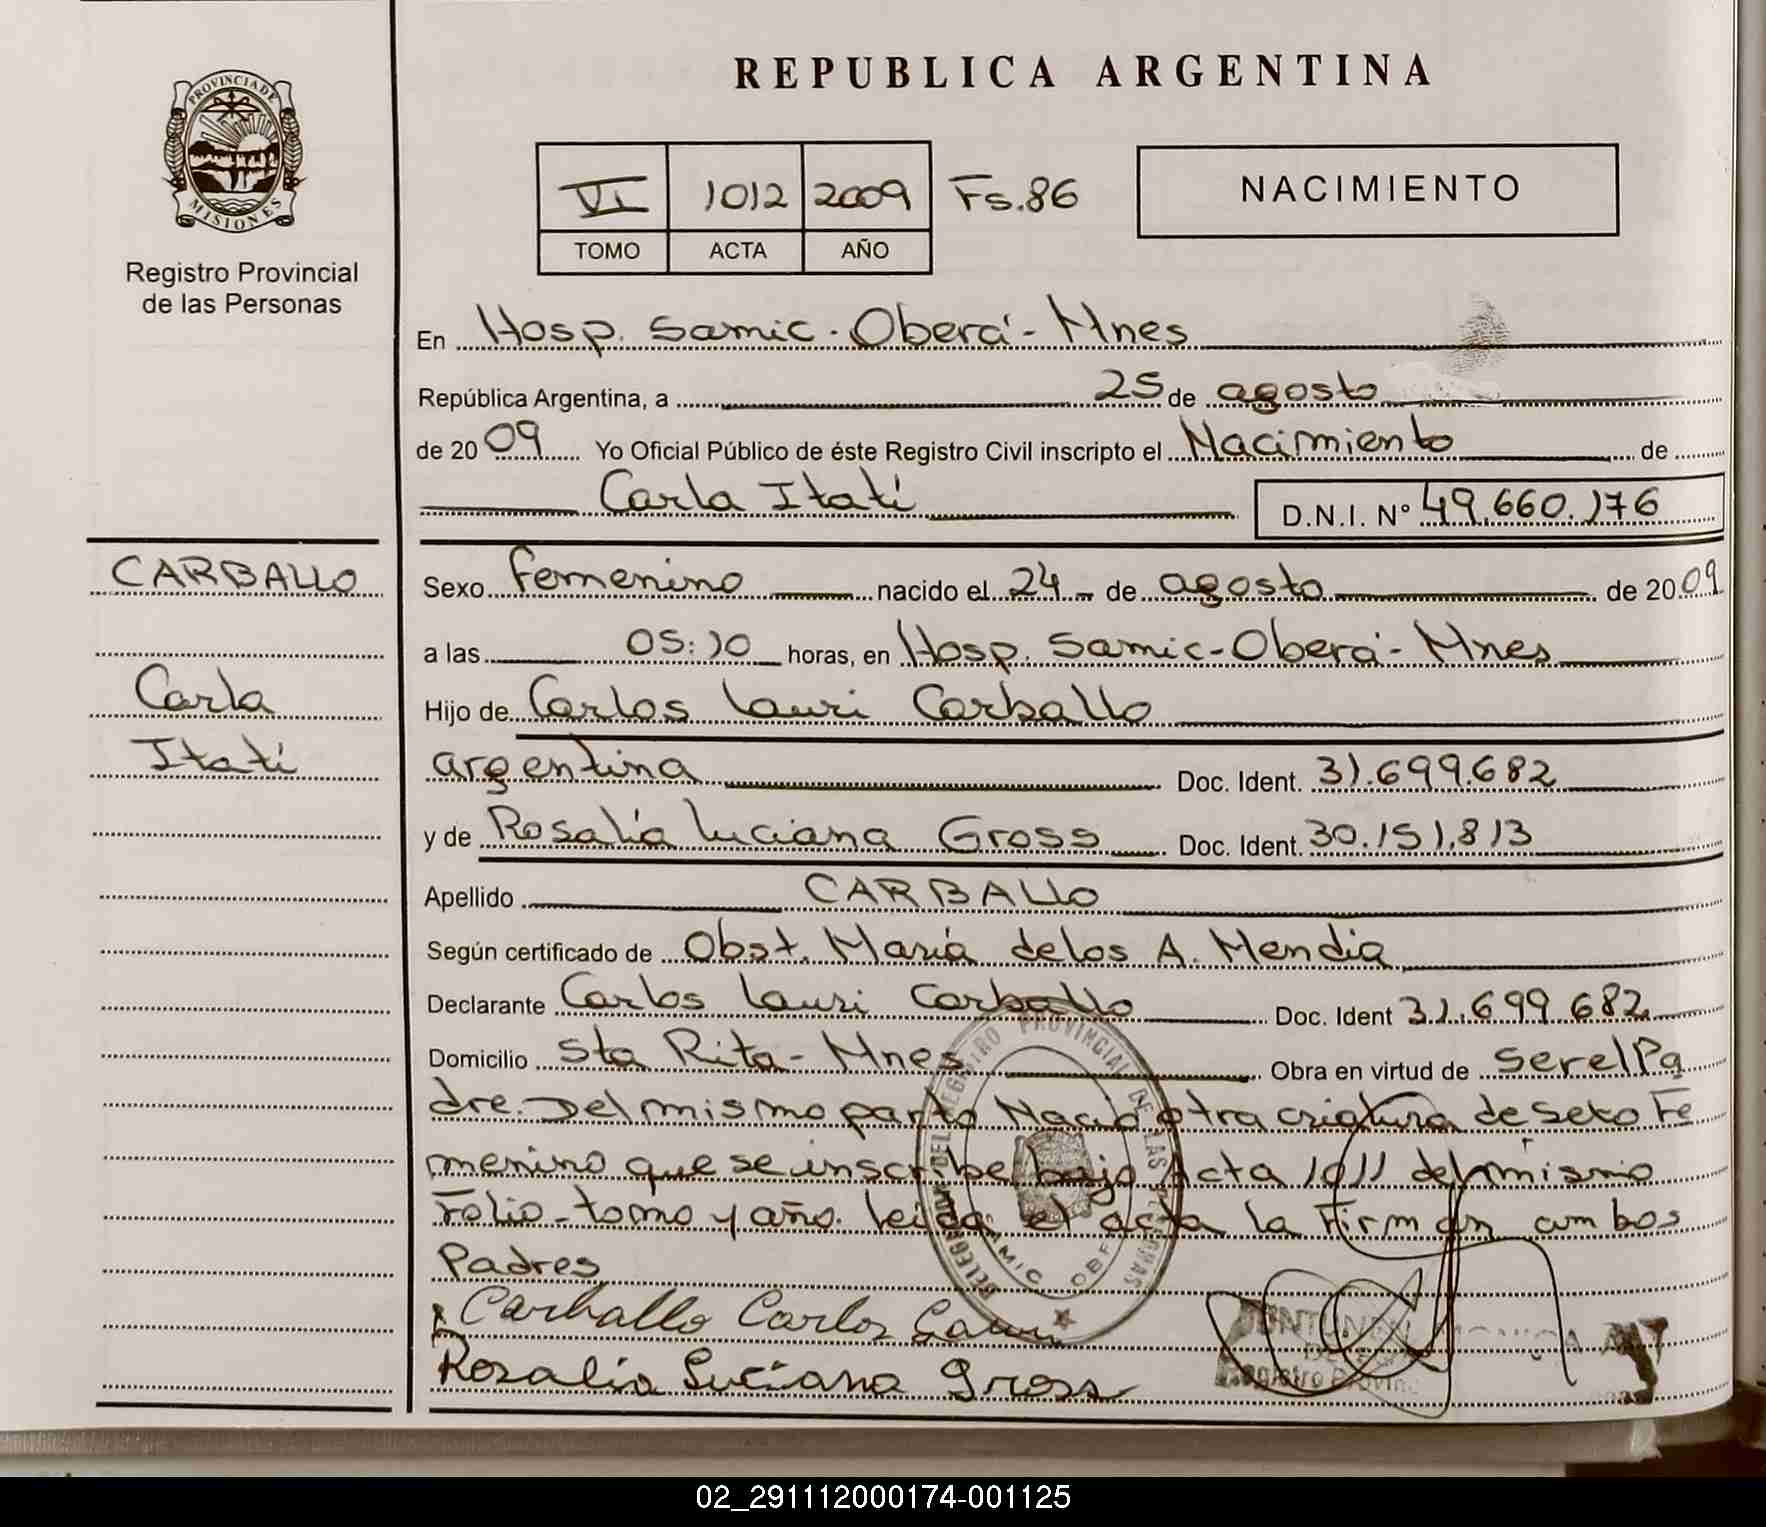 REPUBLICA ARGENTINA
PROVINCIA DE
MISIONES
Registro Provincial
de las Personas
VI 1012 2009 Fs.86
TOMO ACTA AÑO
NACIMIENTO
En Hosp. Samic - Oberá - Mnes
República Argentina, a 25 de agosto
de 2009 Yo Oficial Público de éste Registro Civil inscripto el Nacimiento de
Carla Itatí D.N.I. Nº 49.660.176
CARBALLO
Carla
Itatí
Sexo Femenino nacido el 24 de agosto de 2009
a las 05:10 horas, en Hosp. Samic - Oberá - Mnes
Hijo de Carlos Lauri Carballo
argentina Doc. Ident. 31.699.682
y de Rosalía Luciana Gross Doc. Ident. 30.151.813
Apellido CARBALLO
Según certificado de Obst. María de los A. Mendia
Declarante Carlos Lauri Carballo Doc. Ident 31.699 682
Domicilio Sta Rita - Mnes Obra en virtud de ser el Pa
dre. Del mismo parto Nació otra criatura de sexo Fe
menino que se inscribe bajo Acta 1011 del mismo
Folio - tomo y año. leida el acta la Firman ambos
Padres
Carballo Carlos Lauri
Rosalía Luciana Gross
REGISTRO PROVINCIAL DE LAS PERSONAS
Registro Provin
02_291112000174-001125